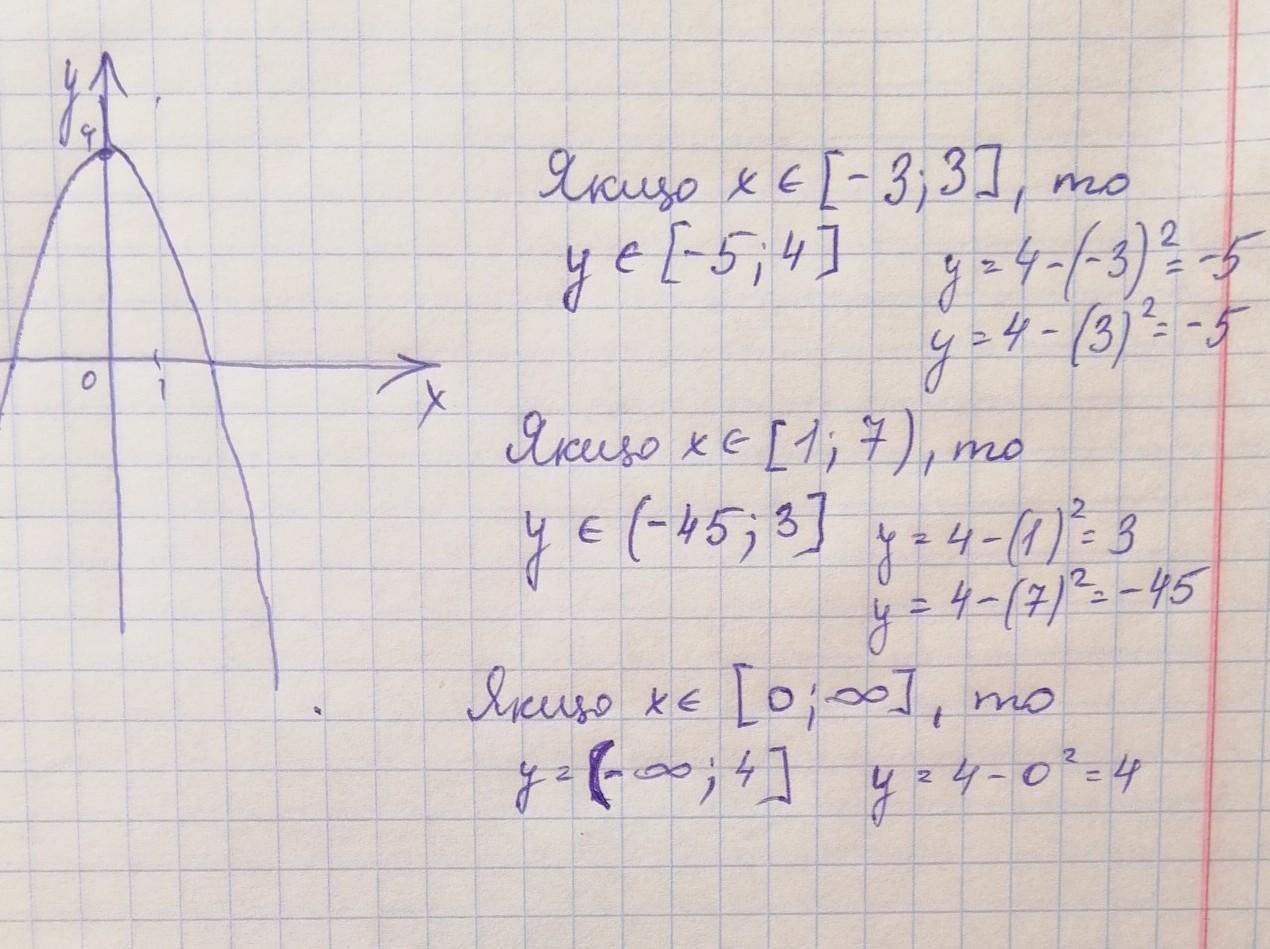 y
4
0
1
x
Якщо x ∈ [-3; 3], то
y ∈ [-5; 4] y = 4-(-3)² = -5
y = 4-(3)² = -5
Якщо x ∈ [1; 7), то
y ∈ (-45; 3] y = 4-(1)² = 3
y = 4-(7)² = -45
Якщо x ∈ [0; ∞], то
y = (-∞; 4] y = 4-0² = 4